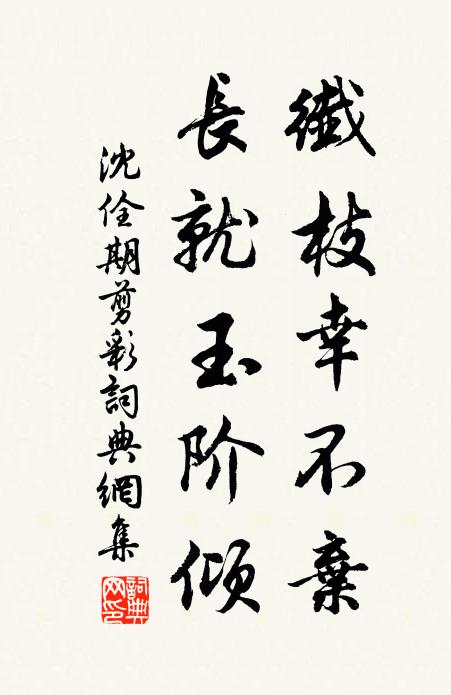 纖枝幸不棄
長就玉阶傾
沈佺期剪彩詞典網集
詞典网印